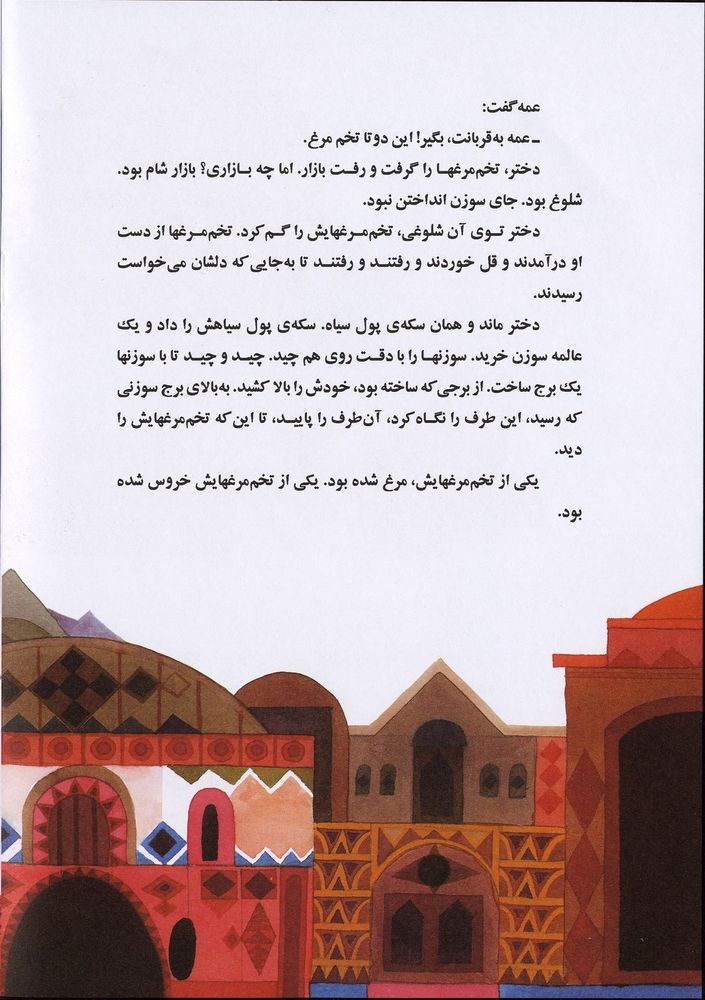 عمه گفت:
ـ عمه به‌قربانت، بگیر! این دوتا تخم مرغ.
دختر، تخم‌مرغهـا را گرفت و رفـت بازار. اما چه بـازاری؟ بازار شام بود.
شلوغ بود. جای سوزن انداختن نبود.
دختر تـوی آن شلوغی، تخم‌مـرغهایش را گـم‌کرد. تخم‌مـرغها از دست
او درآمدند و قل خوردند و رفتنـد و رفتنـد تا به‌جایی‌که دلشان می‌خواست
رسیدند.
دختر ماند و همان سکه‌ی پول سیاه. سکه‌ی پول سیاهش را داد و یک
عالمه سوزن خرید. سوزنهـا را با دقـت روی هم چید. چیـد و چیـد تا با سوزنها
یک برج ساخت. از برجی‌که ساخته بود، خودش را بالا کشید. به‌بالای برج سوزنی
که رسید، این طرف را نگـاه‌کرد، آن‌طرف را پاییـد، تا این‌که تخم‌مرغهایش را
دید.
یکی از تخم‌مرغهایش، مرغ شده بود. یکی از تخم‌مرغهایش خروس شده
بود.